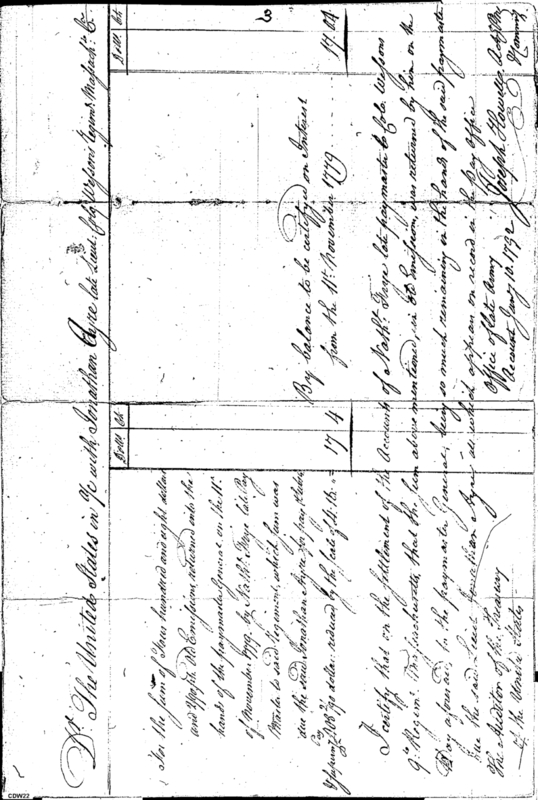 Dr. The United States in a/c with Jonathan Ayre late Lieut. Colo. Wessons Regimt. Massachts. Cr.
Doll. Cts.
For the sum of Four hundred and eight dollars
and Old Emissions returned into the
hands of the paymaster General on the 11th.
of November 1779, by Nathl. Frye late Pay
Master to said regiment, which sum was
due the said Jonathan Ayre for pay &
dollars reduced by the scale of
17 4
Doll. Cts.
By balance to be certified on Interest
from the 11th. November 1779
17
I certify that on the settlement of the Accounts of Nathl. Frye late paymaster to Colo. Wessons
9th Regimt. Massachusetts, that the sum above mentioned, in Old Emission, was returned by him on the
Day aforesaid, to the paymaster General, being so much remaining in the hands of the said paymaster
due the said Lieut. Jonathan Ayre all which appears on record in the Pay Office
The Auditor of the Treasury
of the United States
Office of late Army
Accounts Jany. 10. 1792
Joseph Howell
CDW22